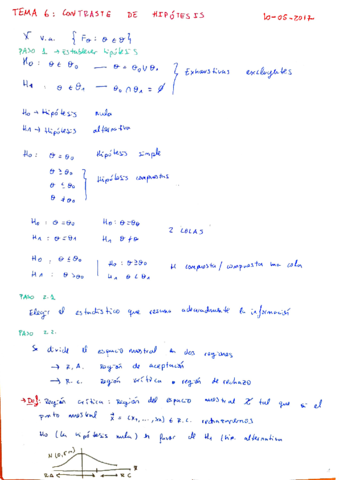 TEMA 6: CONTRASTE DE HIPÓTESIS 10-05-2017
X v.a. { Fθ : θ ∈ Θ }
PASO 1 → Establecer hipótesis
H0: θ ∈ Θ0 — Θ = Θ0 ∪ Θ1
H1: θ ∈ Θ1 — Θ0 ∩ Θ1 = ∅
Exhaustivas excluyentes
H0 → Hipótesis nula
H1 → Hipótesis alternativa
H0: θ = θ0 Hipótesis simple
θ ≥ θ0
θ ≤ θ0
θ ≠ θ0
Hipótesis compuestas
H0: θ = θ0 H0: θ = θ0
H1: θ = θ1 H1 θ ≠ θ0
2 COLAS
H0: θ ≤ θ0 H0: θ ≥ θ0
H1: θ > θ0 H1 θ < θ1
H compuesta / compuesta una cola
PASO 2.1
Elegir el estadístico que resuma adecuadamente la información
PASO 2.2.
Se divide el espacio muestral en dos regiones
→ R.A. Región de aceptación
→ R.C. Región crítica o región de rechazo
→ Def: Región crítica: Región del espacio muestral X tal que si el
punto muestral x = (x1, ..., xn) ∈ R.C. rechazaremos
H0 (la hipótesis nula) a favor de H1 (la alternativa
N(0,1)
R.A R.C.